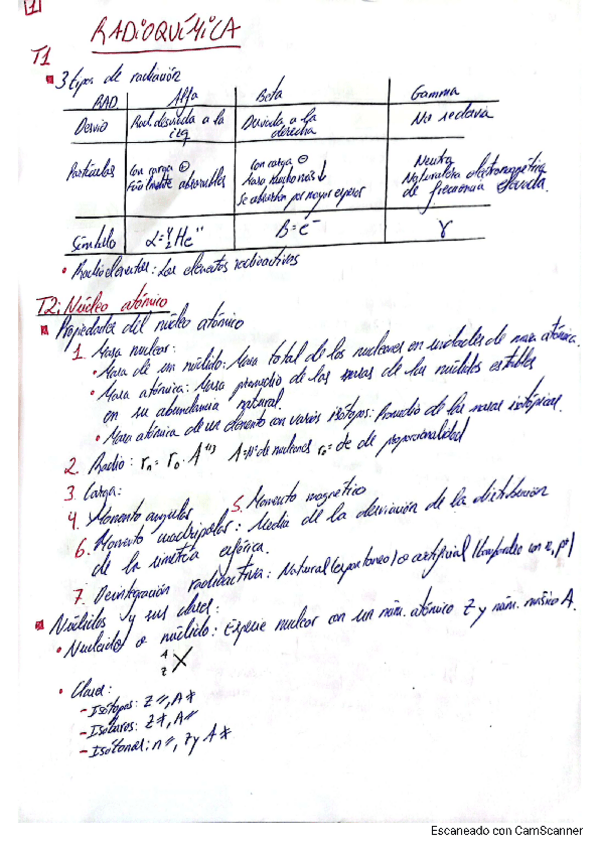 1
RADIOQUÍMICA
T1
3 tipos de radiación
RAD. Alfa Beta Gamma
Desvío Rad. desviada a la izq Desviada a la derecha No se desvía
Partículas Con carga ⊕ Fácilmente absorbibles Con carga ⊖ Masa mucho más ↓ Se absorben por mayor espesor Neutra Naturaleza electromagnética de frecuencia elevada.
Símbolo α = ⁴₂He⁺⁺ β = e⁻ γ
• Radioelementos: Los elementos radioactivos
T2: Núcleo atómico
Propiedades del núcleo atómico
1. Masa nuclear:
• Masa de un núclido: Masa total de los nucleones en unidades de masa atómica.
• Masa atómica: Masa promedio de las masas de los núclidos estables
en su abundancia natural.
• Masa atómica de un elemento con varios isótopos: Promedio de las masas isotópicas.
2. Radio: rₙ = r₀ · A^1/3 A = nº de nucleones r₀ = cte de proporcionalidad
3. Carga:
4. Momento angular 5. Momento magnético
6. Momento cuadripolar: Medida de la desviación de la distribución
de la simetría esférica.
7. Desintegración radioactiva: Natural (espontáneo) o artificial (bombardeo con n, p⁺)
Núclidos y sus clases:
• Nucleido o núclido: Especie nuclear con un núm. atómico Z y núm. másico A.
A Z X
• Clases:
- Isótopos: Z =, A ≠
- Isóbaros: Z ≠, A =
- Isótonos: n =, Z y A ≠
Escaneado con CamScanner